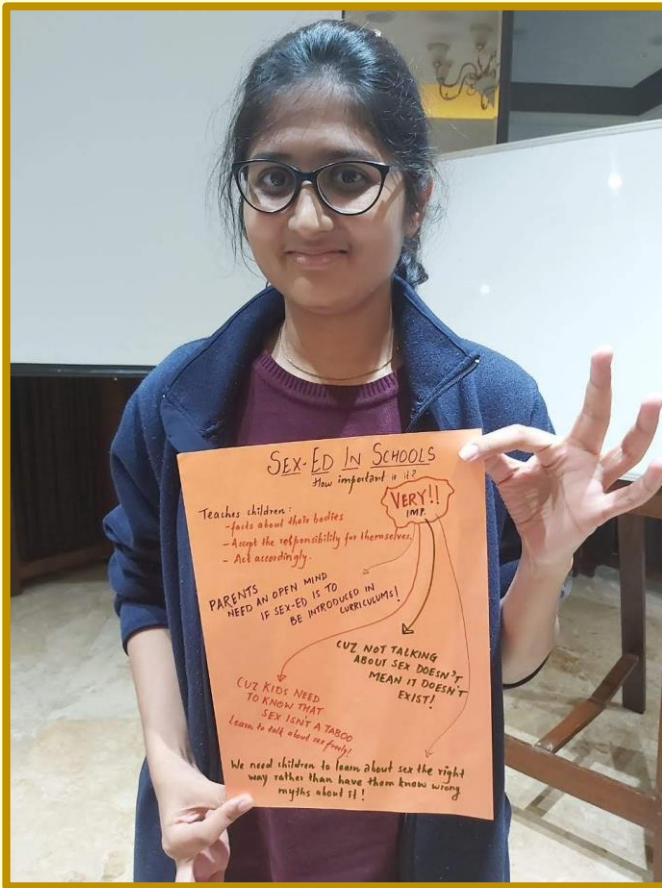 SEX-ED IN SCHOOLS
How important is it?
VERY!!
IMP.
Teaches children:
-facts about their bodies
- Accept the responsibility for themselves.
- Act accordingly.
PARENTS
NEED AN OPEN MIND
IF SEX-ED IS TO
BE INTRODUCED IN
CURRICULUMS!
CUZ NOT TALKING
ABOUT SEX DOESN'T
MEAN IT DOESN'T
EXIST!
CUZ KIDS NEED
TO KNOW THAT
SEX ISN'T A TABOO
Learn to talk about sex freely!
We need children to learn about sex the right
way rather than have them know wrong
myths about it!